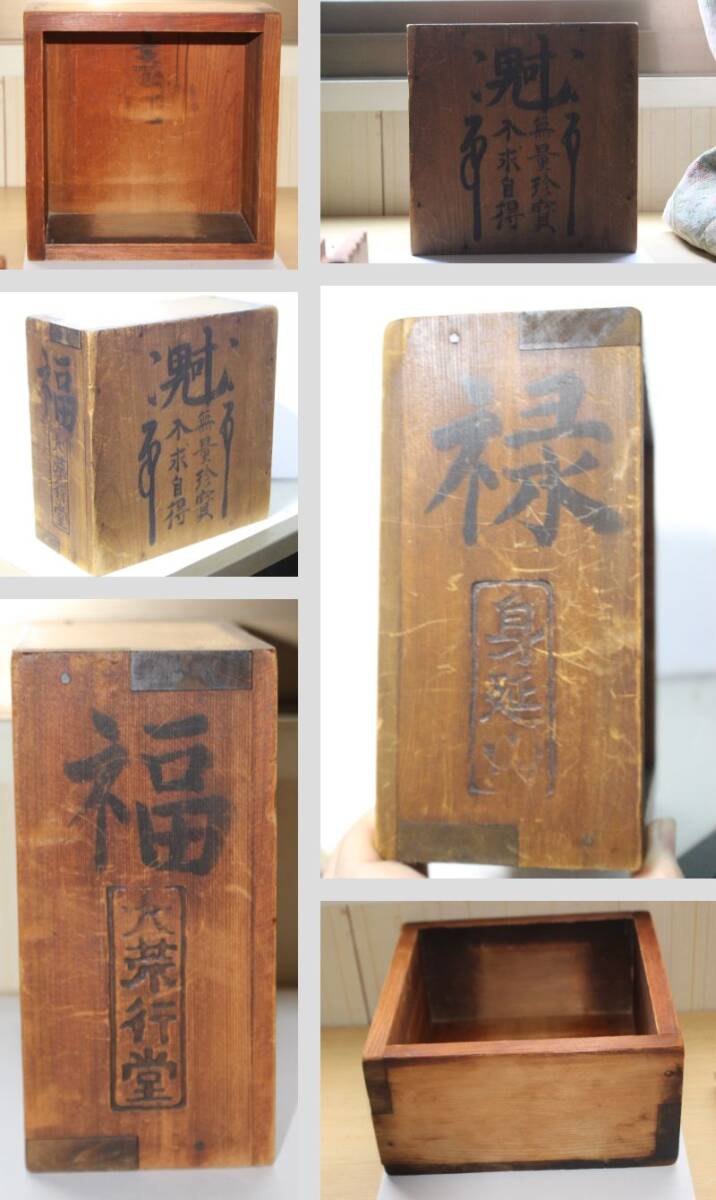 無量珍寶
不求自得
福
大荒行堂
無量珍寶
不求自得
禄
身延山
福
大荒行堂